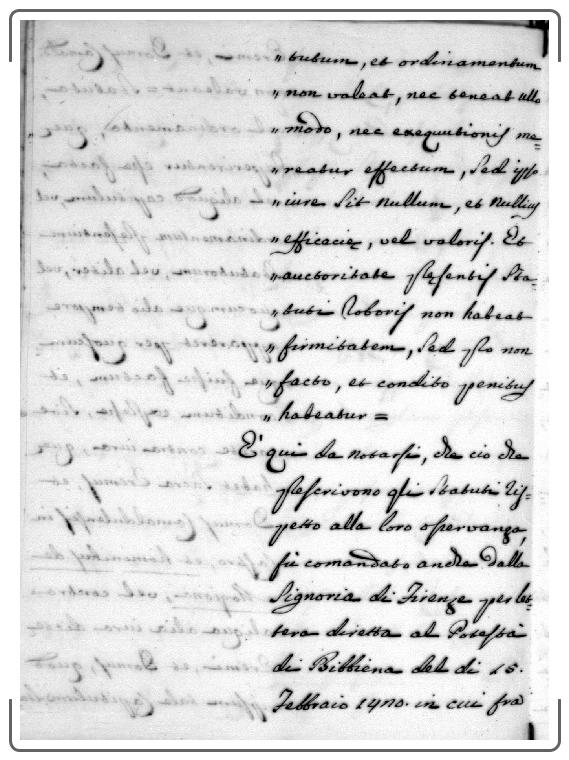 „ tutum, et ordinamentum
„ non valeat, nec teneat ullo
„ modo, nec exequutionis me=
„ reatur effectum, sed ipso
„ iure sit nullum, et nullius
„ efficacie, vel valoris. Et
„ auctoritate presentis Sta=
„ tuti roboris non habeat
„ firmitatem, sed pro non
„ facto, et condito penitus
„ habeatur =
E' qui da notarsi, che cio che
prescrivono gli Statuti ris=
petto alla loro osservanza,
fù comandato anche dalla
Signoria di Firenze per let=
tera diretta al Potestà
di Bibbiena del di 15.
Febbraio in cui fra